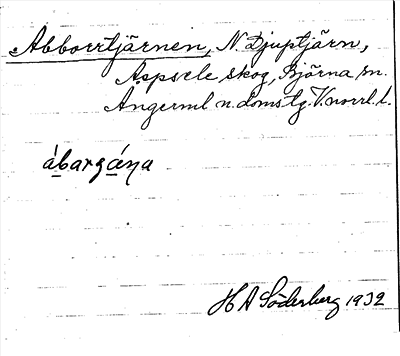 Abborrtjärnen, N. Djuptjärn,
Aspsele skog, Björna sn.
Ångerml n. domstg. V.norrl. l.
ábargáṇa
H A Söderberg 1932